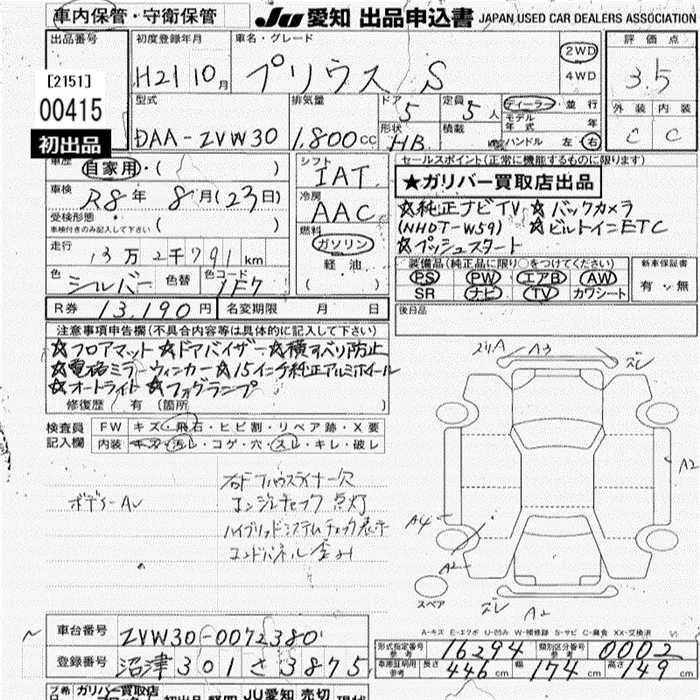 車内保管・守衛保管 JU 愛知 出品申込書 JAPAN USED CAR DEALERS ASSOCIATION
出品番号 初度登録年月 車名・グレード 評価点
[2151] H21 10月 プリウス S 2WD 4WD 3.5
00415 型式 排気量 ドア 5 定員 5人 ディーラー・並行 外装 内装
初出品 DAA-ZVW30 1,800cc 形状 HB 積載 モデル年式 年 ハンドル 左・右 C C
車歴 自家用・( ) シフト IAT セールスポイント(正常に機能するものに限ります)
車検 R8年 8月(23日) 冷房 AAC ★ガリバー買取店出品
受検形態 車検付きのみ記入して下さい ( ) 燃料 ☆純正ナビTV ☆バックカメラ
(NHDT-W59) ☆ビルトインETC
☆プッシュスタート
走行 13万2千791km ガソリン 軽油 ( )
装備品(純正品に限り○をつけてください) 新車保証書
色 シルバー 色替 色コード 1F7 PS PW エアB AW 有・無
SR ナビ TV カワシート
R券 13,190円 名変期限 月 日 後日品
注意事項申告欄(不具合内容等は具体的に記入して下さい)
☆フロアマット ☆ドアバイザー ☆横すべり防止
☆電格ミラーウィンカー ☆15インチ純正アルミホイール
☆オートライト ☆フォグランプ
修復歴 有 (箇所 )
検査員 FW キズ・飛石・ヒビ割・リペア跡・X要
記入欄 内装 キズ・汚レ・コゲ・穴・スレ・キレ・破レ
A3 ズレ
A2
A4
A2
ズレ A2
スペア
エンジンチェック点灯
ハイブリッドシステムチェック表示
A-キズ E-エクボ U-凹み W-補修跡 S-サビ C-腐食 XX-交換済
車台番号 ZVW30-0072380 形式指定番号 参考 16294 類別区分番号 参考 0002
登録番号 沼津 301 さ 3875 車庫証明用 参考 長さ 446cm 幅 174cm 高さ 149cm
ガリバー買取店
JU愛知 売切